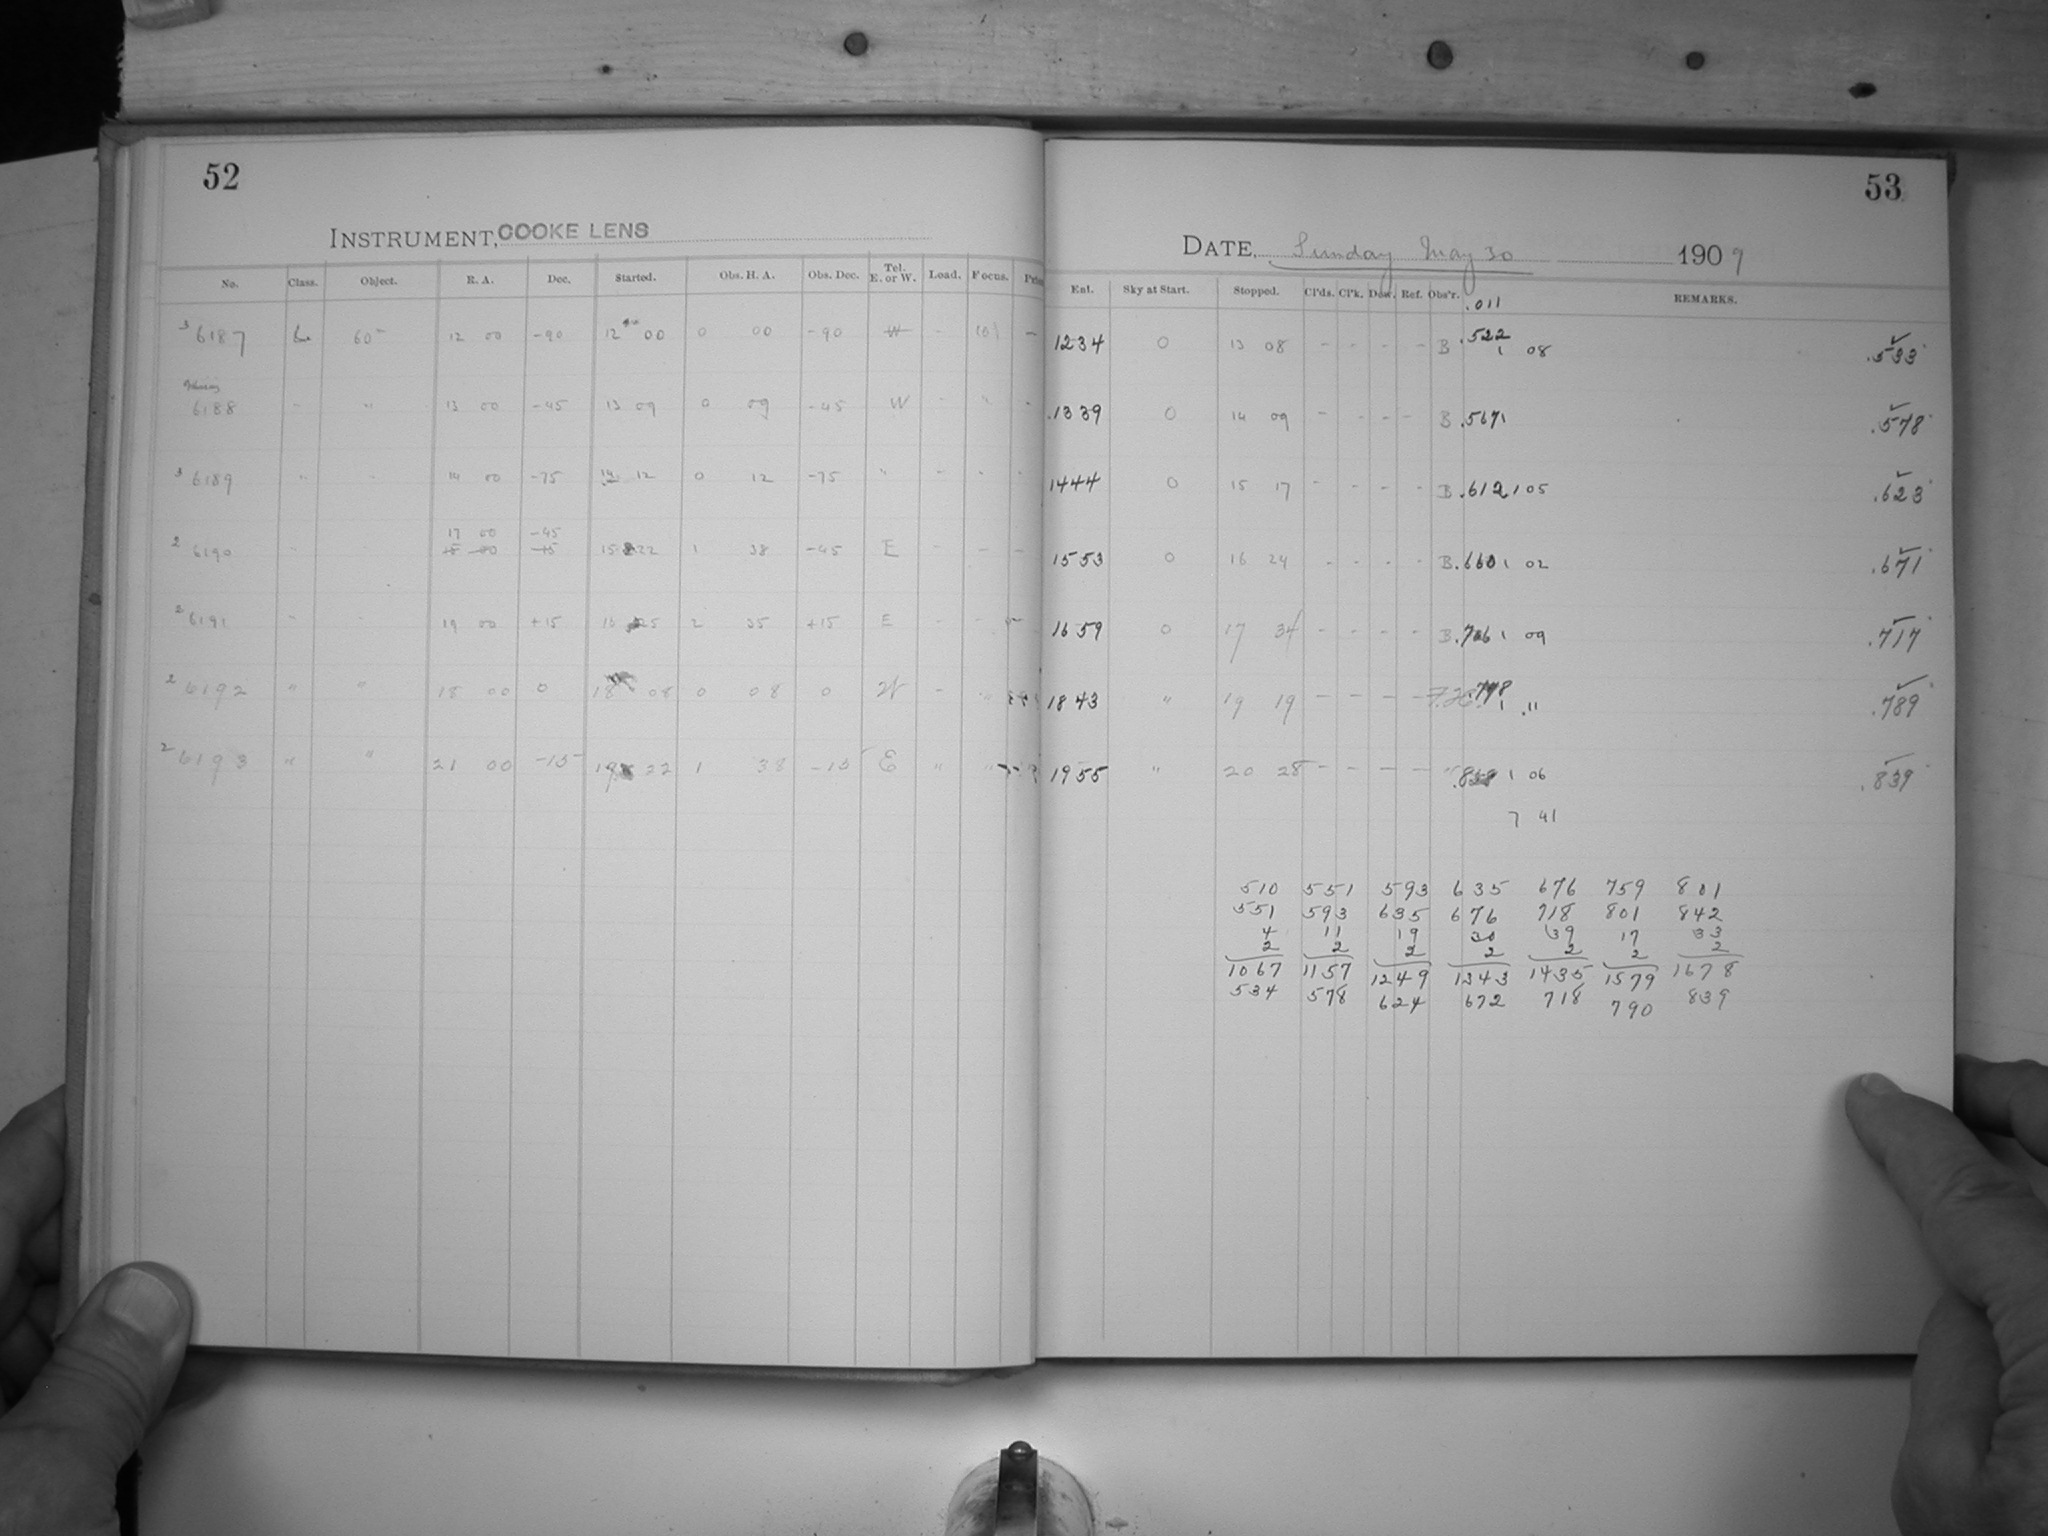 52
INSTRUMENT, COOKE LENS
No. Class. Object. R. A. Dec. Started. Obs. H. A. Obs. Dec. Tel. E. or W. Load. Focus.
3 6187 60 12 00 -90 12 00 0 00 -90 W - -
6188 - " 13 00 -45 13 09 0 09 -45 W - " -
3 6189 " - 14 00 -75 14 12 0 12 -75 " - - -
17 00 -45
2 6190 - 15 22 1 38 -45 E - - -
2 6191 - - 19 00 +15 16 25 2 35 +15 E - -
2 6192 " " 18 00 0 18 08 0 08 0 W - "
2 6193 " " 21 00 -15 19 22 1 38 -15 E " "
53
DATE, Sunday May 30 1909
Ent. Sky at Start. Stopped. Cl'ds. Cl'k. Dew. Ref. Obs'r. REMARKS.
.011
1234 0 13 08 - - - - B .522 1 08 .533
.1339 0 14 09 - - - - B .567 1 .578
1444 0 15 17 - - - - B .612 1 05 .623
1553 0 16 24 - - - - B .660 1 02 .671
1659 0 17 34 - - - - B .706 1 09 .717
1843 " 19 19 - - - - .778 1 .11 .789
1955 " 20 28 - - - - " 1 06 .839
7 41
510 551 593 635 676 759 801
551 593 635 676 718 801 842
4 11 19 30 39 17 33
2 2 2 2 2 2 2
1067 1157 1249 1343 1435 1579 1678
534 578 624 672 718 790 839